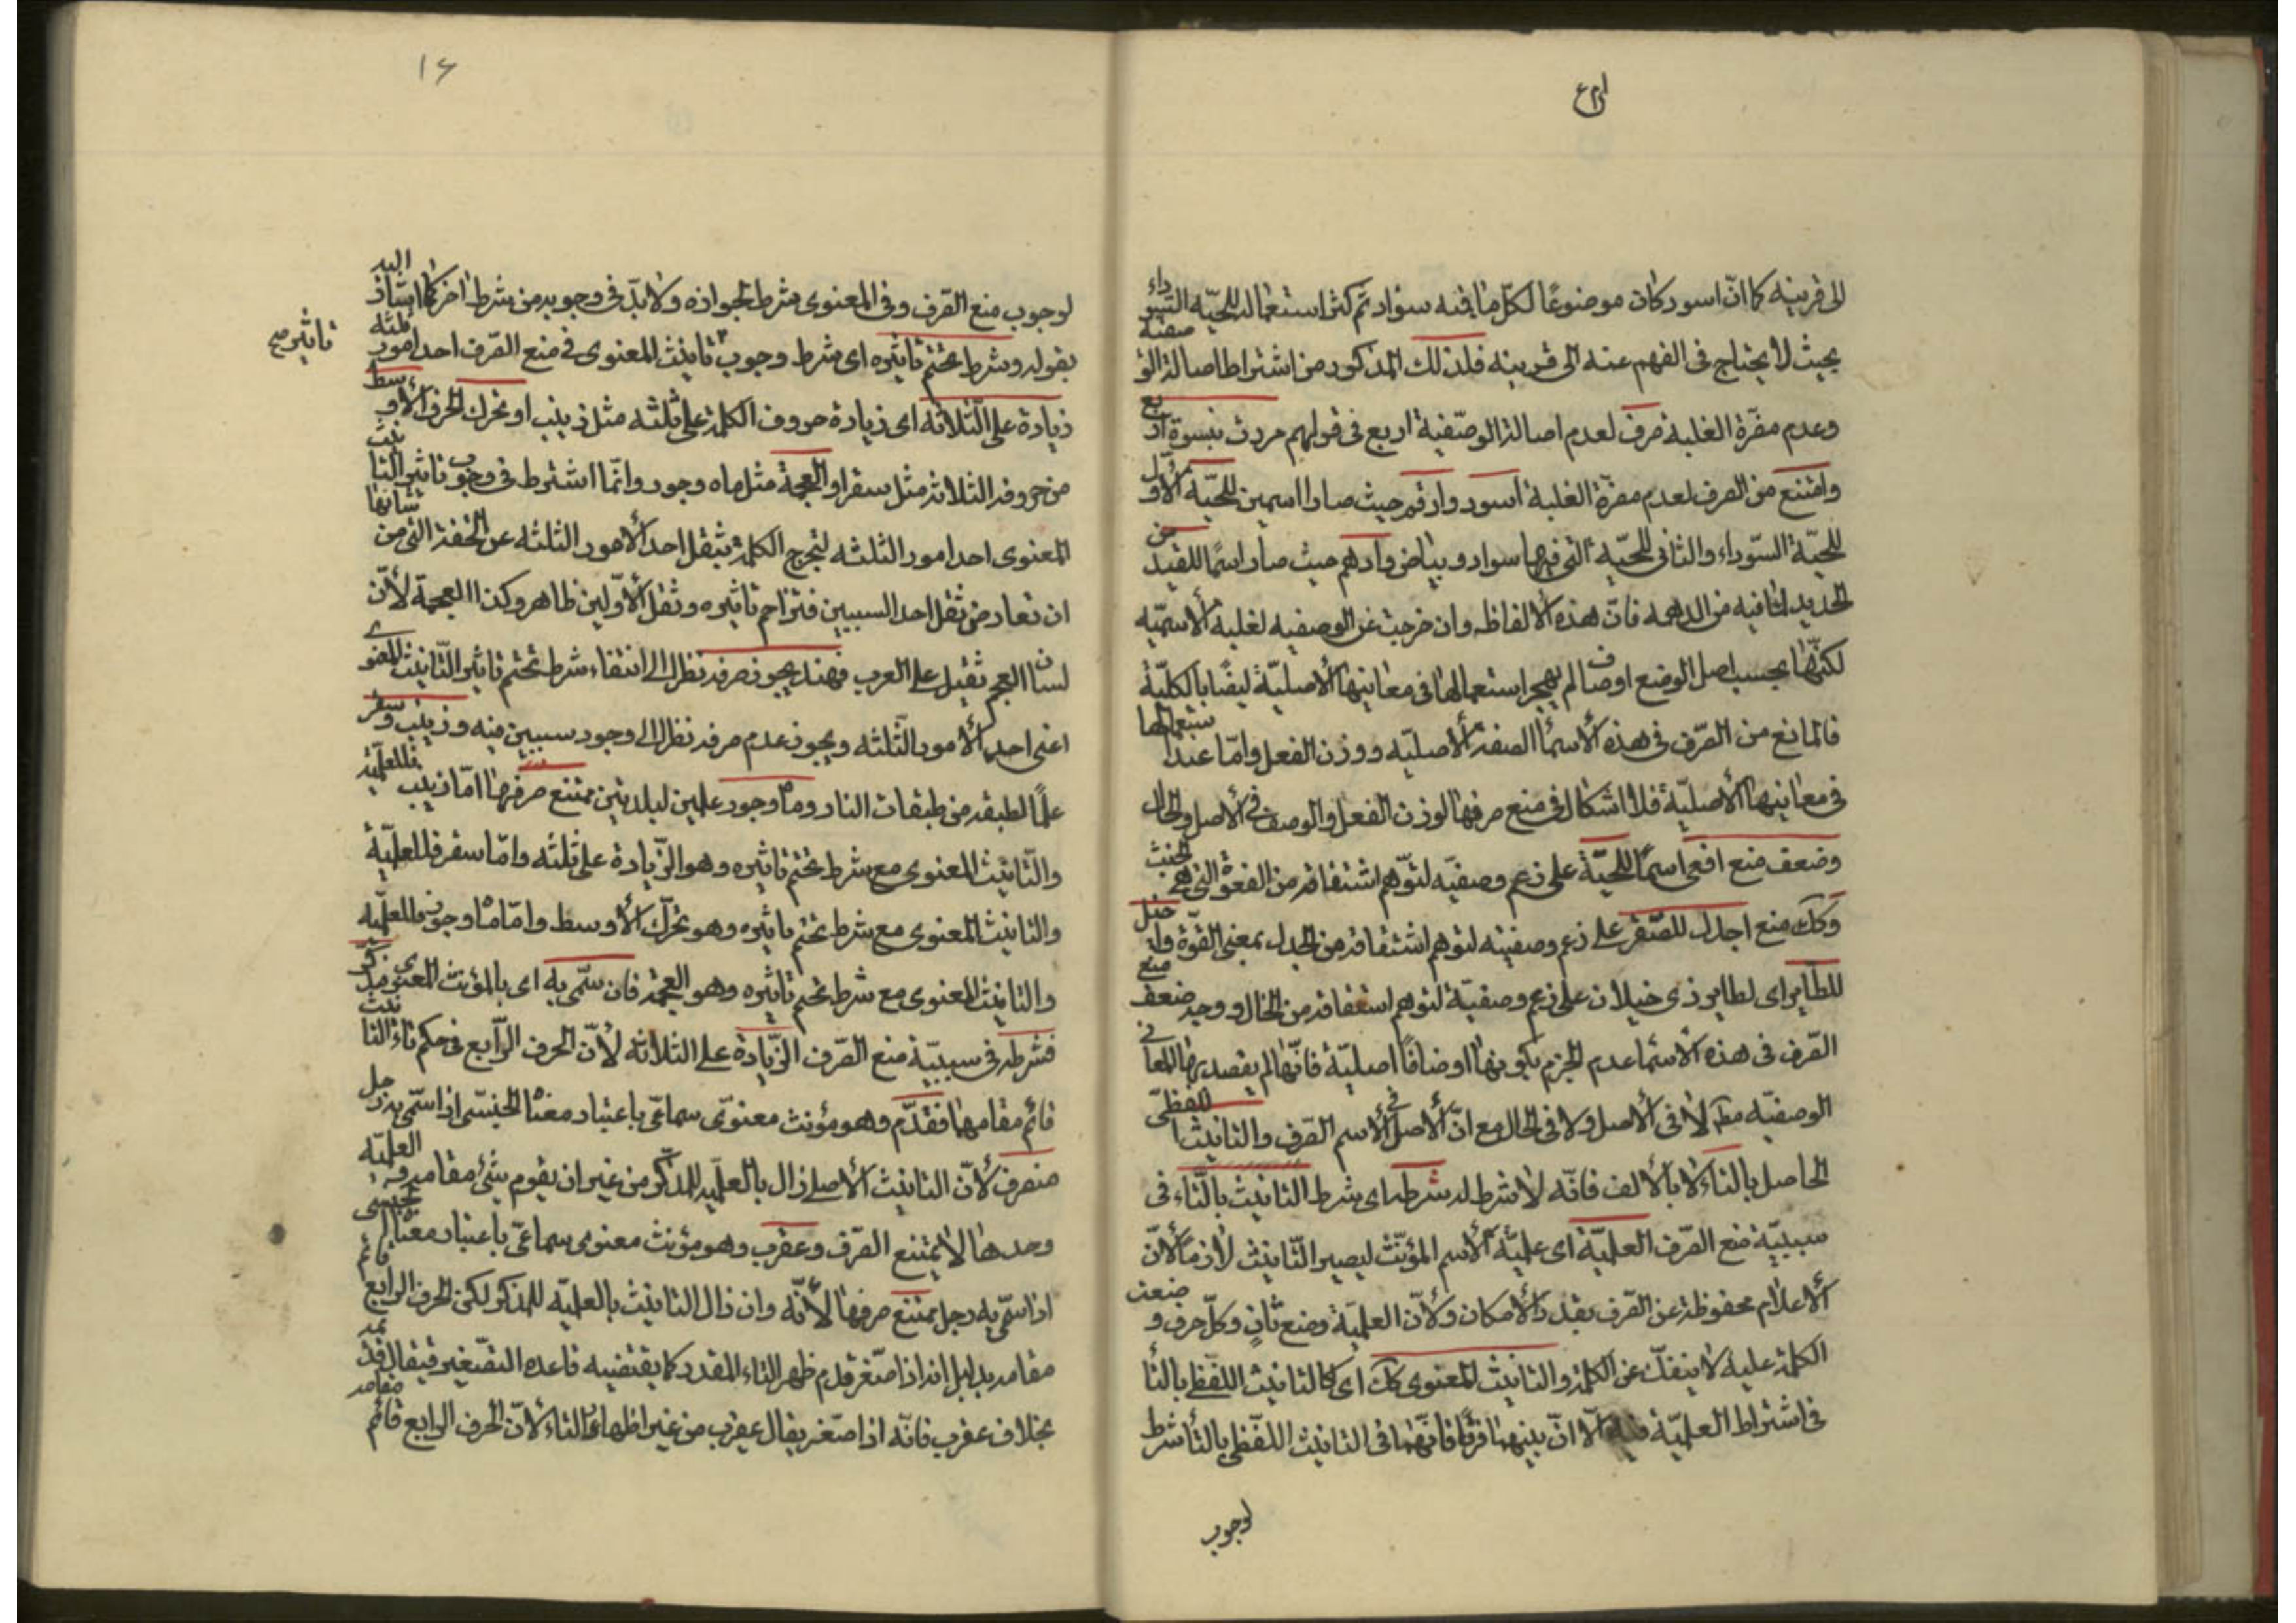 الى قرينة كما انّ اسود كان موضوعًا لكلّ ما فيه سواد ثم كثر استعماله للحيّة السوداء
بحيث لا يحتاج فى الفهم عنه الى قرينه فلذلك المذكور من اشتراط اصالة الوصفية
وعدم مضرّة الغلبة صرف لعدم اصالة الوصّفية اربع فى قولهم مررت بنسوة اربع
وامتنع من الصرف لعدم مضرّة الغلبة اسود وارقم حيث صارا اسمين للحيّة الأوّل
للحيّة السّوداء والثانى للحيّة التى فيها سواد وبياض وادهم حيث صار اسمًا للقيد من
الحديد لما فيه من الدهمه فانّ هذه الالفاظ وان خرجت عن الوصفيه لغلبة الأسميّه
لكنّها بحسب اصل الوضع اوصاف لم يهجر استعمالها فى معانيها الأصليّة ايضًا بالكليّة
فالمانع من الصّرف فى هذه الأسمأ الصفة الأصليّه ووزن الفعل وامّا عند استعمالها
فى معانيها الأصليّة فلا اشكال فى منع صرفها لوزن الفعل والوصف فى الأصل والحال
وضعف منع افعى اسمًا للحيّة على زعم وصفيّه لتوّهم اشتقاقه من الفعوة التى هى الخبث
وكك منع اجدل للصّقر على زعم وصفيته لتوهم اشتقاقه من الجدل بمعنى القوّة واخيل
للطّاير اى لطاير ذى خيلان على زعم وصفيّة لتوهم اشتقاقه من الخال ووجه ضعف منع
الصّرف فى هذه الأسما عدم الجزم بكونها اوصافًا اصليّة فانّها لم يقصد بها المعانى
الوصفيّه مط لا فى الأصل ولا فى الحال مع انّ الأصل فى الأسم الصرف والتانيث اللفظىّ
الحاصل بالتاء لا بالألف فانّه لا شرط له شرطه اى شرط التانيث بالتّاء فى
سببيّة منع الصّرف العلميّة اى علميّة الأسم المؤنّث ليصير التّانيث لازمًا لأنّ
الأعلام محفوظة عن الصّرف بقدر الأمكان ولأنّ العلميّة وضع ثانٍ وكلّ حرف وضعت
الكلمة عليه لا ينفكّ عن الكلمة والتانيث المعنوى كك اى كالتانيث اللّفظى بالتّأ
فى اشتراط العلميّة فيه الّا انّ بينهما فرقًا فانّها فى التانيث اللّفظى بالتأ شرط
لوجوب
١٦
لوجوب منع الصّرف وفى المعنوى شرط لجوازه ولا بدّ فى وجوبه من شرط اخر كما اشار اليه
بقوله وشرط تحتّم تاثيره اى شرط وجوب تانيث المعنوى فى منع الصّرف احد امور ثلثه
تاثير صح
زيادة على الثّلاثه اى زيادة حروف الكلمة على ثلثه مثل زينب او تحرك الحرف الأوسط
من حروفه الثلاثة مثل سقر او العجمة مثل ماه وجور وانّما اشترط فى وجوب تاثير التانيث
المعنوى احد امور الثلثه ليخرج الكلمة بثقل احد الأمور الثلثه عن الخفة التى من شانها
ان تعارض ثقل احد السببين فتزاحم تاثيره وثقل الأوّلين ظاهر وكذا العجمة لأنّ
لسان العجم ثقيل على العرب فهند يجوز صرفه نظرا الى انتفاء شرط تحتم تاثير التّانيث المعنوى
اعنى احد الأمور الثّلثه ويجوز عدم صرفه نظرا الى وجود سببين فيه وزينب وسقر
علمًا لطبقة من طبقات النار وماه وجور علمين لبلدتين ممتنع صرفها امّا زينب فللعلميّة
والتّانيث المعنوى مع شرط تحتم تاثيره وهو الزّيادة على ثلثه وامّا سقر فللعلميّة
والتانيث المعنوى مع شرط تحتم تاثيره وهو تحرّك الأوسط وامّا ماه وجور فللعلميّه
والتانيث المعنوى مع شرط تحتم تاثيره وهو العجمة فان سمّى به اى بالمؤنث المعنوى مذكر
فشرطه فى سببيّة منع الصّرف الزّيادة على الثلاثه لأنّ الحرف الرّابع فى حكم تاء التانيث
قائم مقامها فقدّم وهو مؤنث معنوىّ سماعّى باعتبار معناه الجنسّى اذا سمّى به رجل
منصرف لأنّ التانيث الأصلى زال بالعلميّة للمذكّر من غير ان يقوم شئ مقامه والعلميّة
وحدها لا يمتنع الصّرف وعقرب وهو مؤنث معنوى سماعّى باعتبار معناه الجنسى
اذا سمّى به رجل ممتنع صرفها لأنّه وان زال التانيث بالعلميّه للمذكر لكن الحرف الرابع قائم
مقامه بدليل انه اذا صّغر قدم ظهر التاء المقدر كما يقتضيه قاعدة التصّغير فيقال قديمة
بخلاف عقرب فانّه اذا صّغر يقال عقيرب من غير اظهار التاء لأنّ الحرف الرابع قائم مقامه